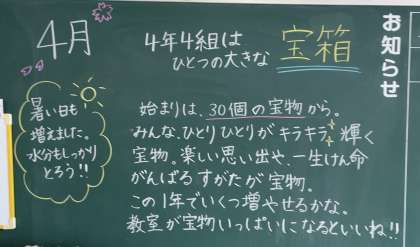 4月
4年4組は
ひとつの大きな
宝箱
お知らせ
暑い日も
増えました。
水分もしっかり
とろう!!
始まりは、30個の宝物から。
みんな、ひとりひとりがキラキラ輝く
宝物。楽しい思い出や、一生けん命
がんばるすがたが宝物。
この1年でいくつ増やせるかな。
教室が宝物いっぱいになるといいね!!